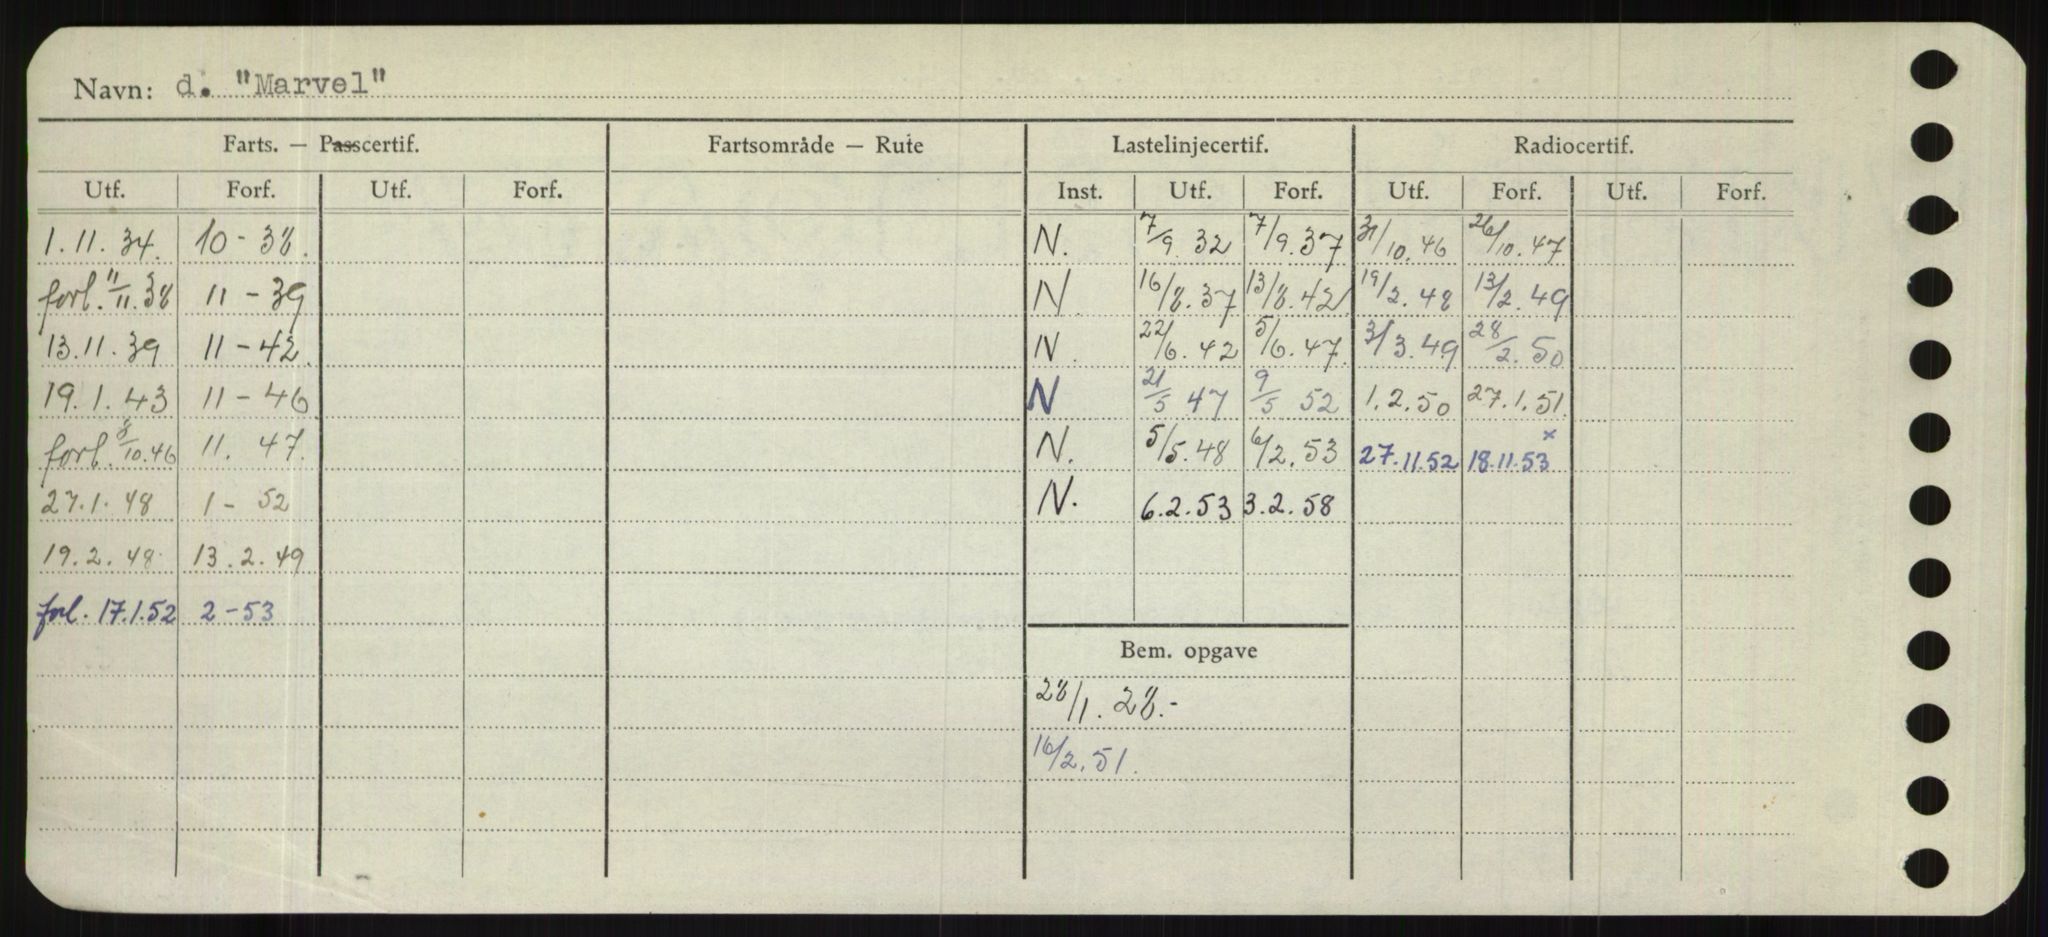 Navn: d. "Marvel"
Farts. — Passcertif. Fartsområde — Rute Lastelinjecertif. Radiocertif.
Utf. Forf. Utf. Forf. Inst. Utf. Forf. Utf. Forf. Utf. Forf.
1.11.34. 10-38. N. 7/9.32 7/9.37 31/10.46 26/10.47
forl. 11/11.38 11-39 N 16/8.37 13/8.42 19/2.48 13/2.49
13.11.39 11-42. N. 22/6.42 5/6.47 3/3.49 28/2.50
19.1.43 11-46 N 21/5 47 9/5 52 1.2.50 27.1.51.
forl. 8/10.46 11.47. N. 5/5.48 6/2.53 27.11.52 18.11.53 x
27.1.48 1-52 N. 6.2.53 3.2.58
19.2.48 13.2.49
forl. 17.1.52 2-53
Bem. opgave
28/1.28.-
16/2.51.